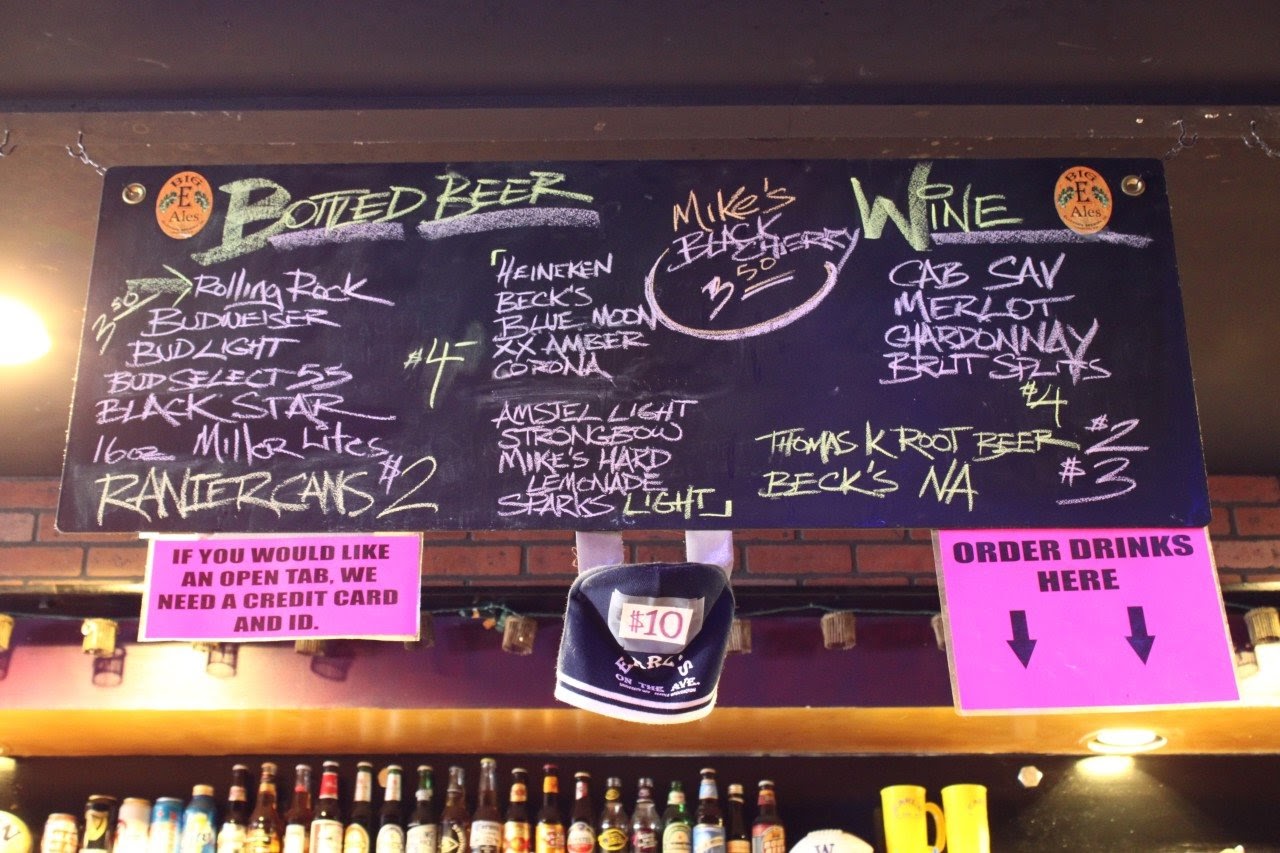 BIG
E
Ales
BOTTLED BEER
3.50
Rolling Rock
BUDWEISER
BUD LIGHT
BUD SELECT 55
BLACK STAR
16oz Miller Lites
RANIER CANS $2
$4-
HEINEKEN
BECK'S
BLUE MOON
XX AMBER
CORONA
AMSTEL LIGHT
STRONGBOW
MIKE'S HARD
LEMONADE
SPARKS LIGHT
MIKE'S
BLACK
CHERRY
3.50
WINE
BIG
E
Ales
CAB SAV
MERLOT
CHARDONNAY
BRUT SPLITS
$4
THOMAS K ROOT BEER $2
BECK'S NA $3
IF YOU WOULD LIKE
AN OPEN TAB, WE
NEED A CREDIT CARD
AND ID.
$10
EARL'S
ON THE AVE.
ORDER DRINKS
HERE
W